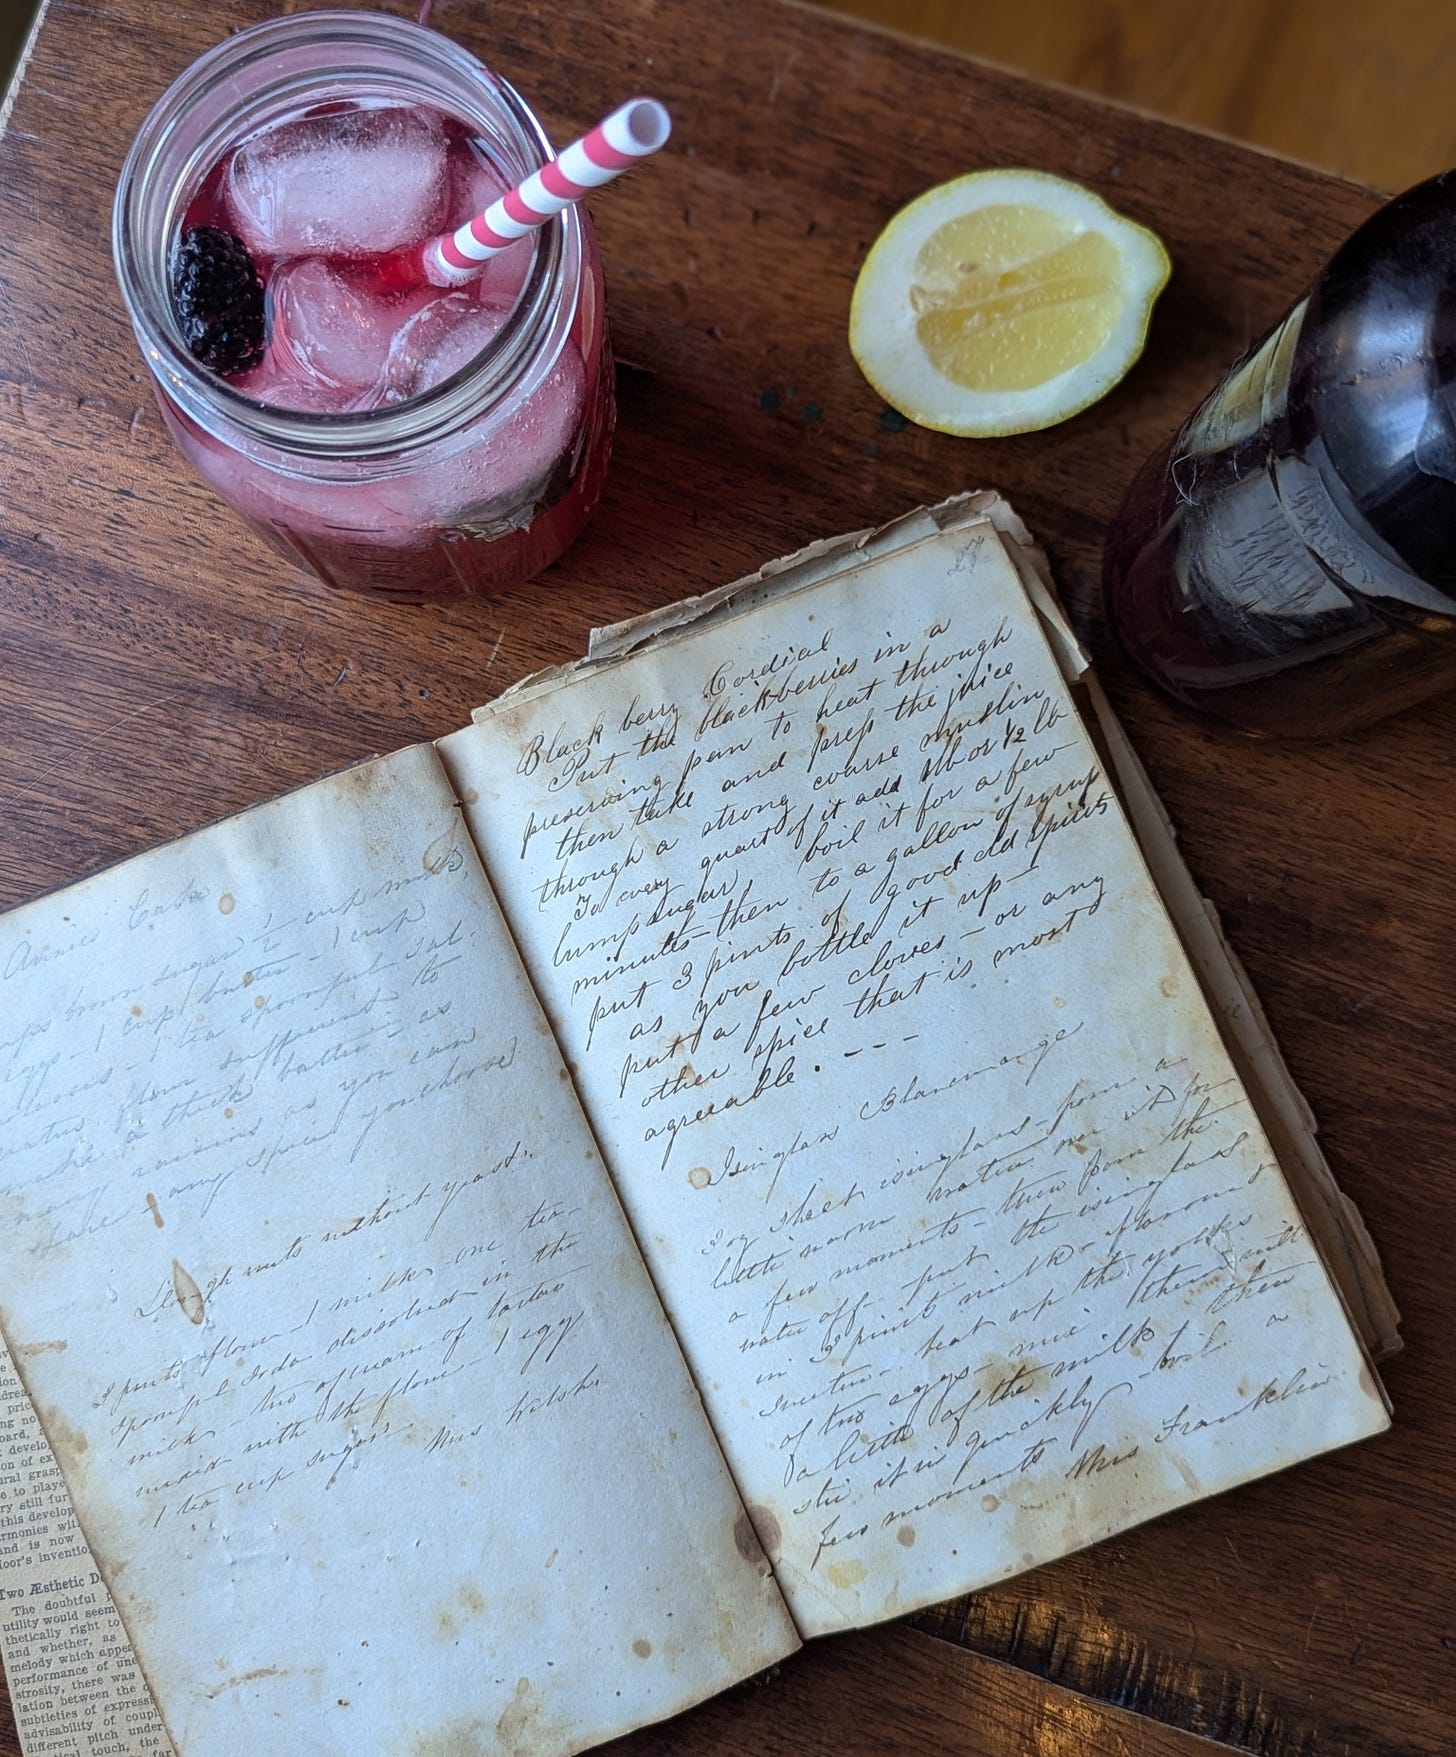 Annie Cake
brown sugar 1/2 cup milk,
eggs - 1 cup butter - 1 cup
- 1 tea spoonful sal.
flour sufficient to
make a thick batter - as
many raisins as you can
- any spice you choose
Dough nuts without yeast.
pints flour - 1 milk - one tea-
spoonful soda dissolved in the
milk - two of cream of tartar
mixed with the flour - 1 egg
1 tea cup sugar.
Mrs
27
Black berry Cordial
Put the blackberries in a
preserving pan to heat through
then take and press the juice
through a strong coarse muslin
To every quart of it add 1lb or 1/2 lb
lump sugar, boil it for a few
minutes - then to a gallon of syrup
put 3 pints of good old spirits
as you bottle it up -
put a few cloves - or any
other spice that is most
agreeable. - - -
Isinglass Blancmange
1 oz sheet isinglass - pour a
little warm water over it for
a few moments - then pour the
water off - put the isinglass
in pint milk - flavour &
sweeten - beat up the yolks
of two eggs - mix them with
a little of the milk & then
stir it in quickly - boil a
few moments Mrs Franklin
Two Æsthetic D
The doubtful
utility would seem
thetically right to
and whether, as
melody which appe
performance of une
strosity, there was
lation between the
subtleties of expressi
advisability of coupl
different pitch under
touch, the